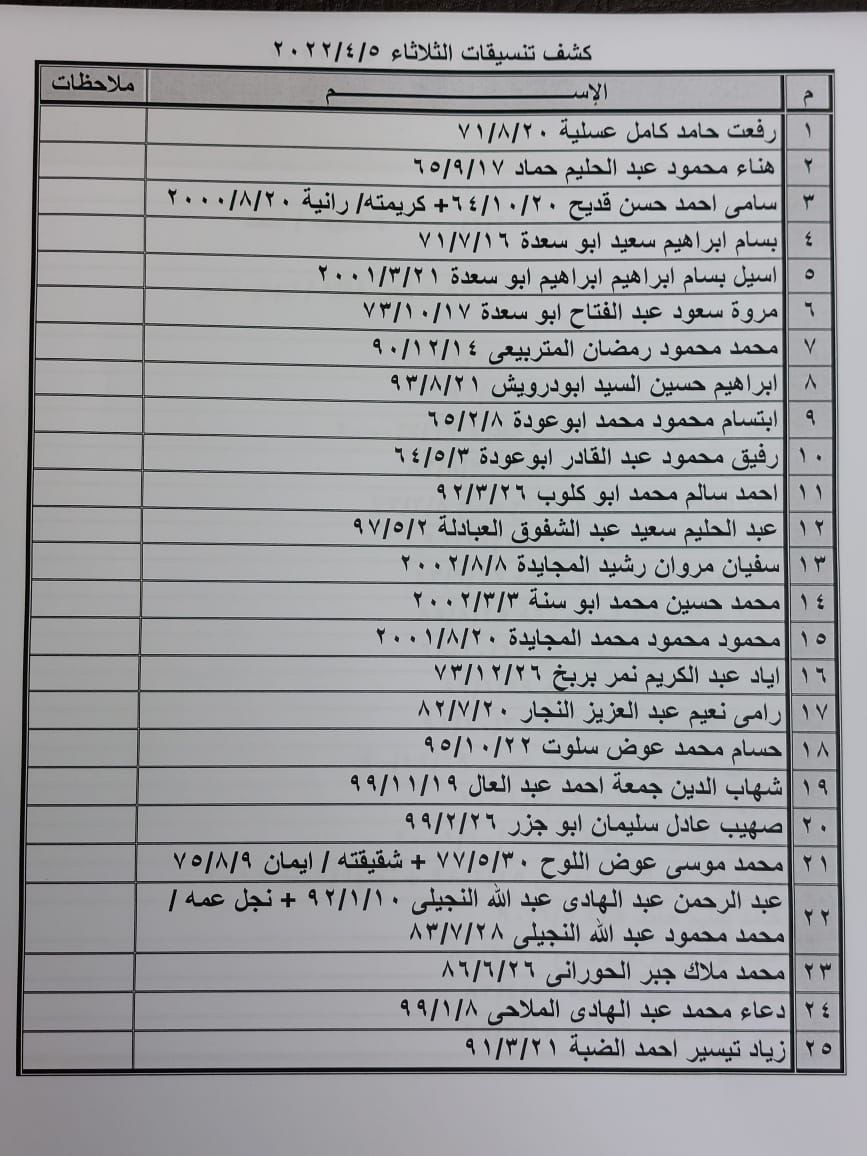 كشف تنسيقات الثلاثاء ٢٠٢٢/٤/٥
م الإســـــم ملاحظات
١ رفعت حامد كامل عسلية ٧١/٨/٢٠
٢ هناء محمود عبد الحليم حماد ٦٥/٩/١٧
٣ سامى احمد حسن قديح ٦٤/١٠/٢٠+ كريمته/ رانية ٢٠٠٠/٨/٢٠
٤ بسام ابراهيم سعيد ابو سعدة ٧١/٧/١٦
٥ اسيل بسام ابراهيم ابراهيم ابو سعدة ٢٠٠١/٣/٢١
٦ مروة سعود عبد الفتاح ابو سعدة ٧٣/١٠/١٧
٧ محمد محمود رمضان المتربيعى ٩٠/١٢/١٤
٨ ابراهيم حسين السيد ابودرويش ٩٣/٨/٢١
٩ ابتسام محمود محمد ابوعودة ٦٥/٢/٨
١٠ رفيق محمود عبد القادر ابوعودة ٦٤/٥/٣
١١ احمد سالم محمد ابو كلوب ٩٢/٣/٢٦
١٢ عبد الحليم سعيد عبد الشفوق العبادلة ٩٧/٥/٢
١٣ سفيان مروان رشيد المجايدة ٢٠٠٢/٨/٨
١٤ محمد حسين محمد ابو سنة ٢٠٠٢/٣/٣
١٥ محمود محمود محمد المجايدة ٢٠٠١/٨/٢٠
١٦ اياد عبد الكريم نمر بربخ ٧٣/١٢/٢٦
١٧ رامى نعيم عبد العزيز النجار ٨٢/٧/٢٠
١٨ حسام محمد عوض سلوت ٩٥/١٠/٢٢
١٩ شهاب الدين جمعة احمد عبد العال ٩٩/١١/١٩
٢٠ صهيب عادل سليمان ابو جزر ٩٩/٢/٢٦
٢١ محمد موسى عوض اللوح ٧٧/٥/٣٠ + شقيقته / ايمان ٧٥/٨/٩
٢٢ عبد الرحمن عبد الهادى عبد الله النجيلى ٩٢/١/١٠ + نجل عمه /
محمد محمود عبد الله النجيلى ٨٣/٧/٢٨
٢٣ محمد ملاك جبر الحورانى ٨٦/٦/٢٦
٢٤ دعاء محمد عبد الهادى الملاحى ٩٩/١/٨
٢٥ زياد تيسير احمد الضبة ٩١/٣/٢١